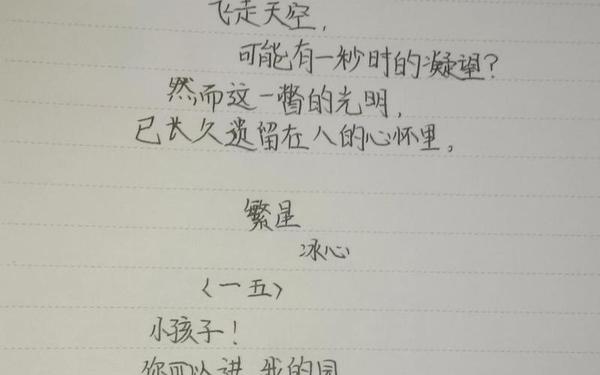 飞走天空，
可能有一秒时的凝望？
然而这一瞥的光明，
已长久遗留在人的心怀里。
繁星
冰心
〈一五〉
小孩子！
你可以进我的园